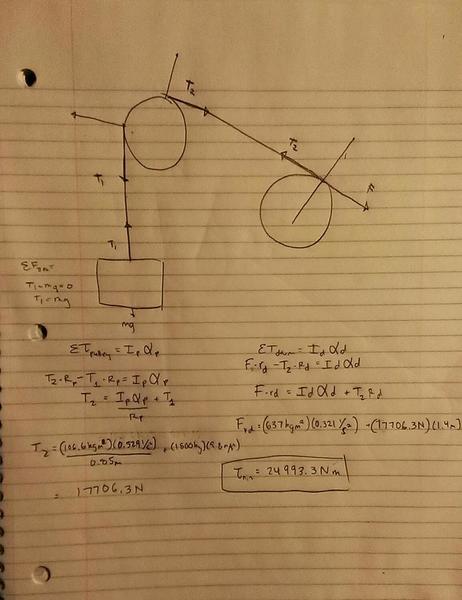 T₂
T₂
F
T₁
T₁
ΣFsm=
T₁-mg=0
T₁=mg
mg
Στpulley = Ipαp
T₂·Rp-T₁·Rp=Ipαp
T₂ = Ipαp/Rp + T₁
T₂ = (106.6kgm²)(0.529 1/s²)/0.85m + (1800kg)(9.8m/s²)
= 17706.3N
Στdrum = Idαd
F·rd - T₂·Rd = Idαd
F·rd = Idαd + T₂Rd
F·rd = (637kgm²)(0.321 1/s²) + (17706.3N)(1.4m)
τmin = 24993.3Nm